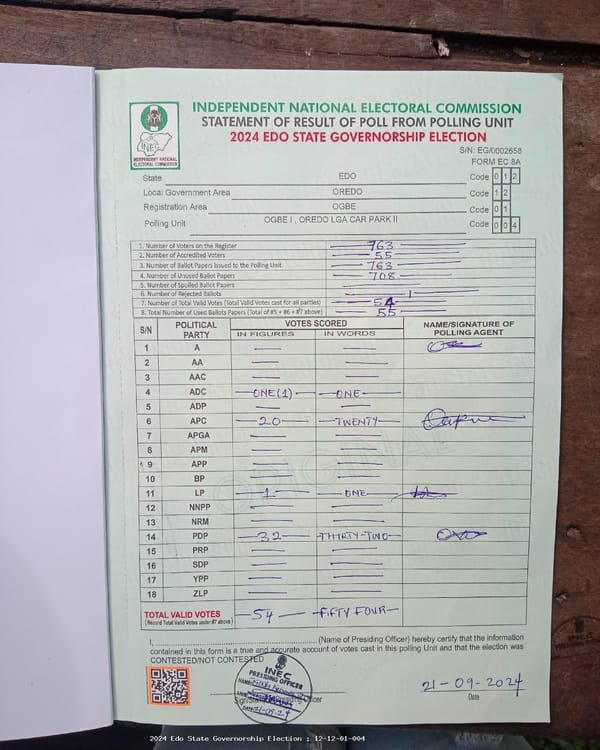 INDEPENDENT NATIONAL ELECTORAL COMMISSION
STATEMENT OF RESULT OF POLL FROM POLLING UNIT
2024 EDO STATE GOVERNORSHIP ELECTION
INEC
INDEPENDENT NATIONAL ELECTORAL COMMISSION
S/N: EG/0002658
FORM EC 8A
State EDO Code 0 1 2
Local Government Area OREDO Code 1 2
Registration Area OGBE Code 0 1
Polling Unit OGBE I , OREDO LGA CAR PARK II Code 0 0 4
1. Number of Voters on the Register 763
2. Number of Accredited Voters 55
3. Number of Ballot Papers Issued to the Polling Unit 763
4. Number of Unused Ballot Papers 708
5. Number of Spoiled Ballot Papers
6. Number of Rejected Ballots 1
7. Number of Total Valid Votes (Total Valid Votes cast for all parties) 54
8. Total Number of Used Ballots Papers (Total of #5 + #6 + #7 above) 55
S/N POLITICAL PARTY VOTES SCORED NAME/SIGNATURE OF POLLING AGENT
IN FIGURES IN WORDS
1 A
2 AA
3 AAC
4 ADC ONE(1) ONE
5 ADP
6 APC 20 TWENTY
7 APGA
8 APM
9 APP
10 BP
11 LP 1 ONE
12 NNPP
13 NRM
14 PDP 32 THIRTY-TWO
15 PRP
16 SDP
17 YPP
18 ZLP
TOTAL VALID VOTES 54 FIFTY FOUR
(Record Total Valid Votes under #7 above)
I, (Name of Presiding Officer) hereby certify that the information
contained in this form is a true and accurate account of votes cast in this polling Unit and that the election was
CONTESTED/NOT CONTESTED
INEC
PRESIDING OFFICER
NAME:
SIGN:
DATE: 21.09.24
21-09-2024
Date
2024 Edo State Governorship Election : 12-12-01-004